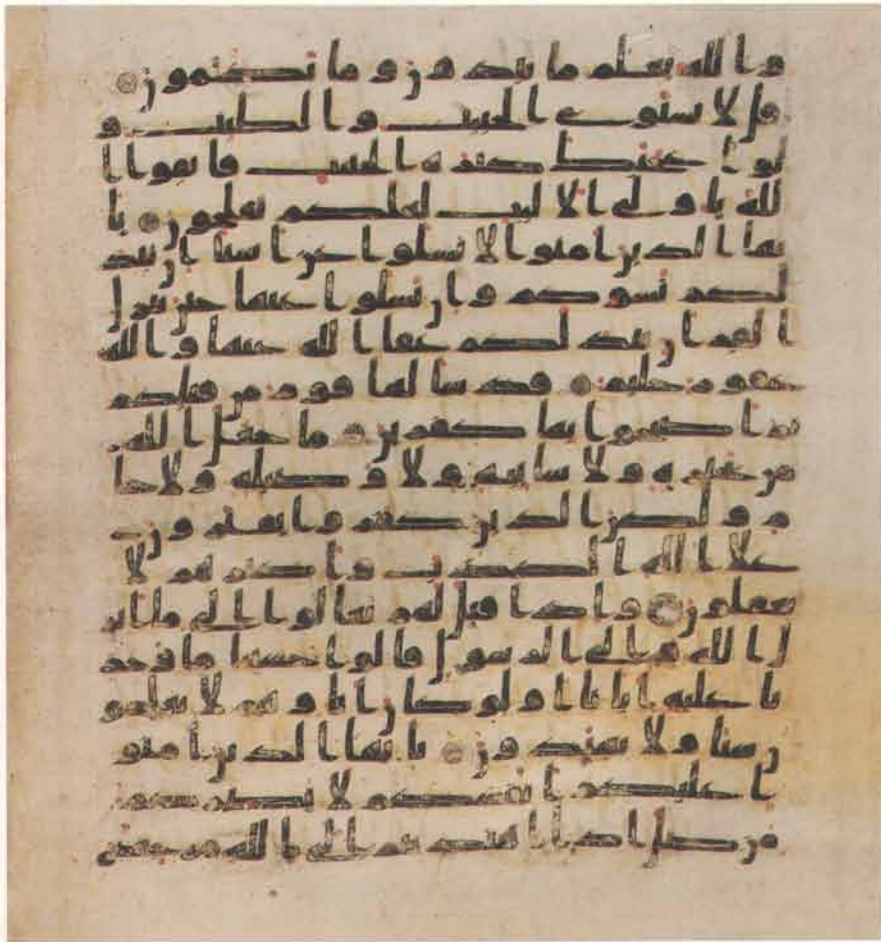 والله يعلم ما تبدون وما تكتمون
قل لا يستوي الخبيث والطيب و
لو اعجبك كثرة الخبيث فاتقوا ا
لله ياولي الالبب لعلكم تفلحون يا
يها الذين امنوا لا تسلوا عن اشيا ان تبد
لكم تسوكم وان تسلوا عنها حين ينزل
القران تبد لكم عفا الله عنها والله
غفور حليم قد سالها قوم من قبلكم
ثم اصبحوا بها كفرين ما جعل الله
من بحيرة ولا سايبة ولا وصيلة ولا حا
م ولكن الذين كفروا يفترون
على الله الكذب واكثرهم لا
يعقلون واذا قيل لهم تعالوا الى ما انز
ل الله والى الرسول قالوا حسبنا ما وجد
نا عليه ابانا اولو كان اباوهم لا يعلمو
ن شيا ولا يهتدون يايها الذين امنو
ا عليكم انفسكم لا يضركم
من ضل اذا اهتديتم الى الله مرجعكم